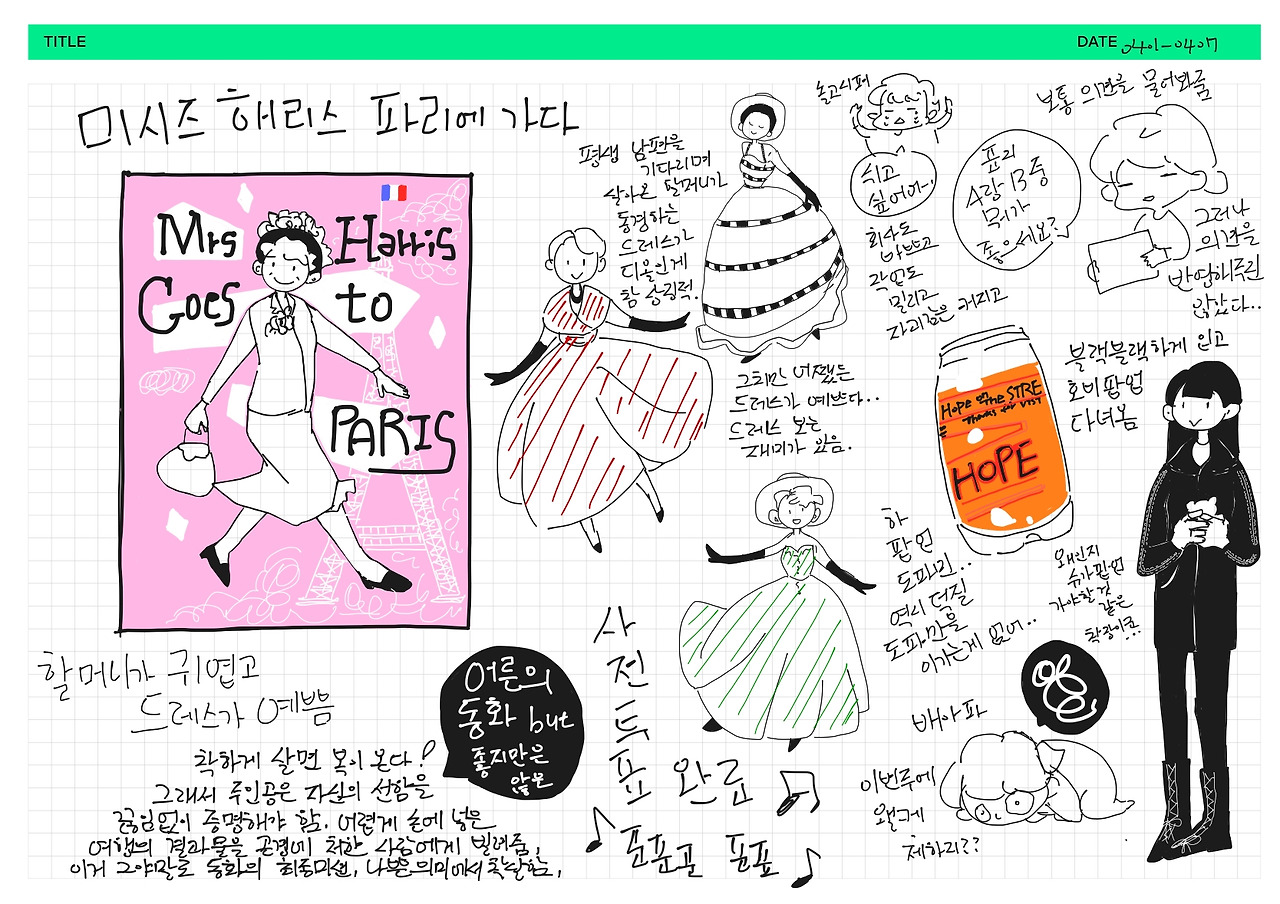 TITLE
DATE 0401-0407
미시즈 해리스 파리에 가다
Mrs Harris
Goes to
PARIS
할머니가 귀엽고
드레스가 예쁨
착하게 살면 복이 온다!
그래서 주인공은 자신의 선함을
끊임없이 증명해야 함. 어렵게 손에 넣은
여행의 결과물을 곤경에 처한 사람에게 빌려줌,
이거 그야말로 동화의 최종미션, 나쁜의미에서
어른의
동화 but
좋지만은
않은
평생 남편을
기다리며
살아온 할머니가
동경하는
드레스가
디올인게
참 상징적.
그치만 어쨌든
드레스가 예쁘다..
드레스 보는
재미가 있음.
사
전
투
표 완료
푠푠푠 푠푠
놀고시퍼
쉬고
싶어어..
회사도
바쁘고
작업도
밀리고
자괴감은 커지고
보통 의견을 물어봐줌
윤리
A랑 B중
뭐가
좋으세요?
그러나
의견을
반영해주진
않았다..
블랙블랙하게 입고
호비팝업
다녀옴
HOPE on the STRE
Thanks for VIST
HOPE
하
팝업
도파민..
역시 덕질
도파민을
이기는게 없어..
왜인지
슈가팝업
가야할것
같은
착장이죠..
배아파
이번주에
왤케